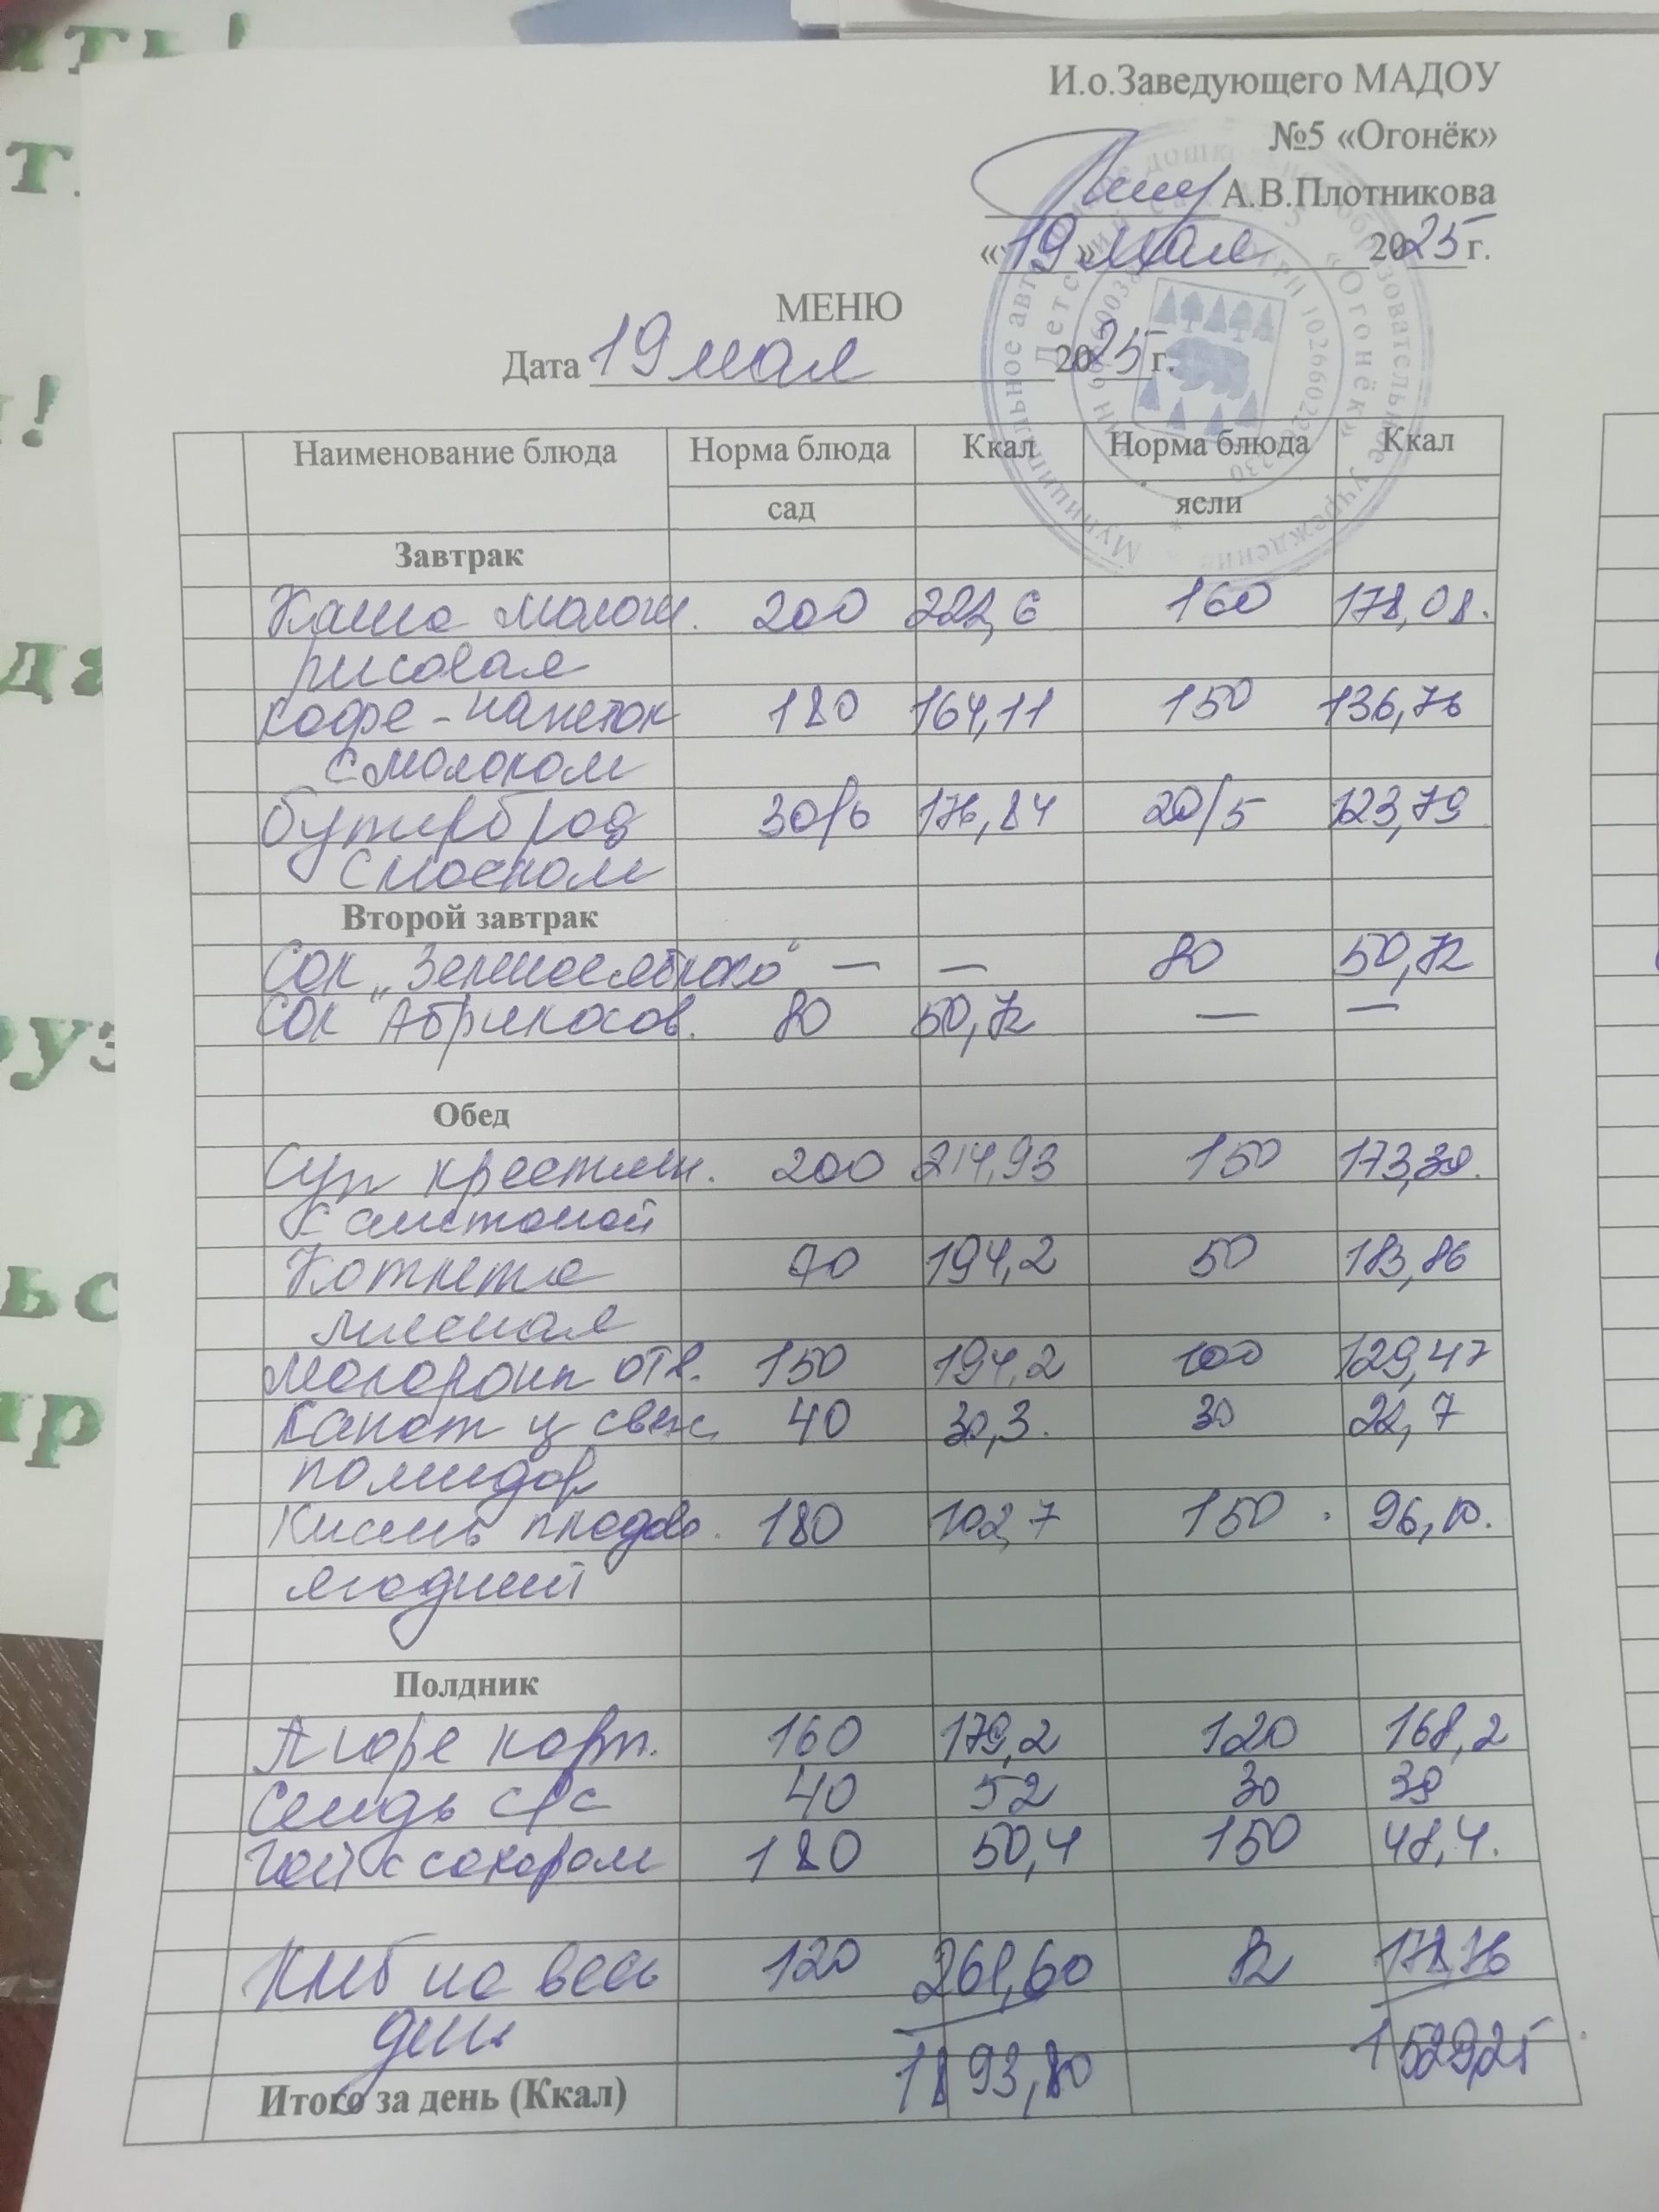 ять!
т.
!
да
руз
ьс
ир
И.о.Заведующего МАДОУ
№5 «Огонёк»
А.В.Плотникова
«19» мая 2025г.
МЕНЮ
Дата 19 мая 2025г.
Наименование блюда Норма блюда Ккал Норма блюда Ккал
сад ясли
Завтрак
Каша молочн. 200 222,6 160 178,08.
рисовая
Кофе-напиток 180 164,11 150 136,76
с молоком
Бутерброд 30/6 176,84 20/5 123,79
с маслом
Второй завтрак
Сок „Зеленое яблоко" — — 80 50,72
Сок "Абрикосов. 80 50,72 — —
Обед
Суп крестьян. 200 214,93 150 173,39.
с сметаной
Котлета 70 194,2 50 183,86
мясная
Макароны отв. 150 194,2 100 129,47
Салат из свеж. 40 30,3. 30 22,7
помидор
Кисель плодово. 180 102,7 150 96,10.
ягодный
Полдник
Пюре карт. 160 179,2 120 168,2
Сельдь с/с 40 52 30 39
Чай с сахаром 180 50,4 150 48,4.
Хлеб на весь 120 261,60 82 178,76
день
Итого за день (Ккал) 1893,80 1529,25
Муниципальное автономное дошкольное образовательное учреждение
Детский сад № 5 «Огонёк»